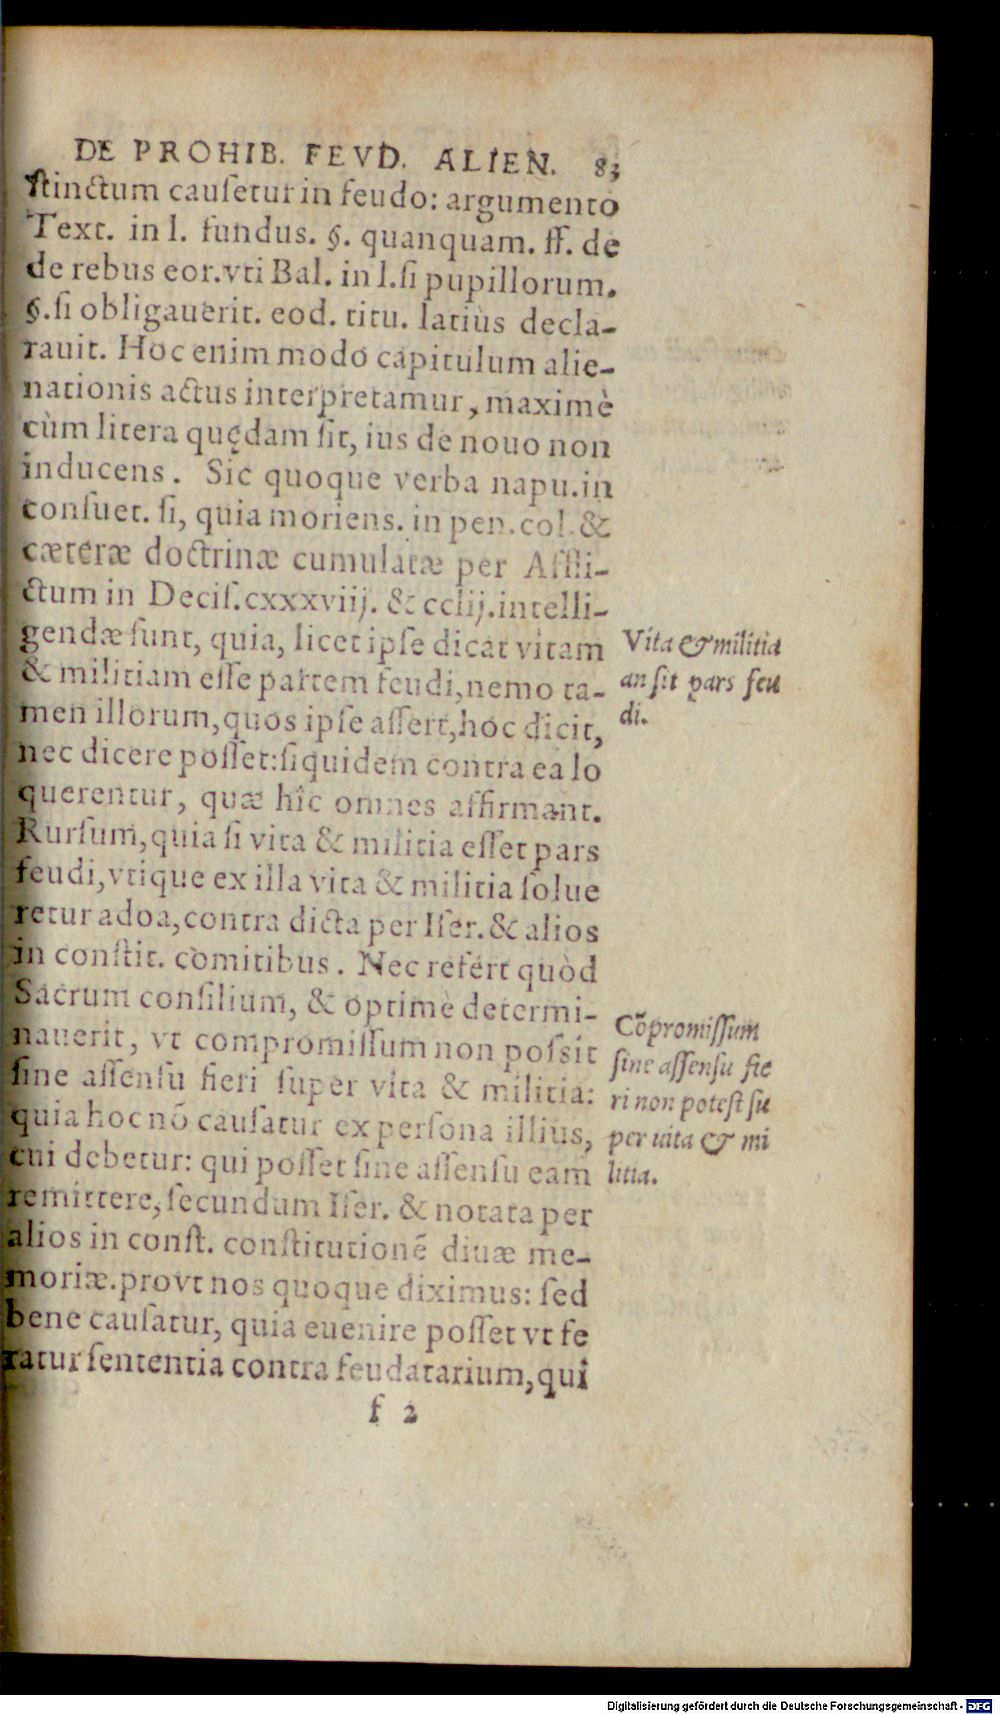 DE PROHIB. FEVD. ALIEN. 83
ſtinctum cauſetur in feudo: argumento
Text. in l. fundus. §. quanquam. ff. de
de rebus eor. vti Bal. in l. ſi pupillorum.
§. ſi obligauerit. eod. titu. latiùs decla-
rauit. Hoc enim modo capitulum alie-
nationis actus interpretamur, maximè
cùm litera quędam ſit, ius de nouo non
inducens. Sic quoque verba napu. in
conſuet. ſi, quia moriens. in pen. col. &
cæteræ doctrinæ cumulatæ per Affli-
ctum in Deciſ. cxxxviij. & cclij. intelli-
gendæ ſunt, quia, licet ipſe dicat vitam
& militiam eſſe partem feudi, nemo ta-
men illorum, quos ipſe aſſert, hoc dicit,
nec dicere poſſet: ſiquidem contra ea lo
querentur, quæ hîc omnes affirmant.
Rurſum, quia ſi vita & militia eſſet pars
feudi, vtique ex illa vita & militia ſolue
retur adoa, contra dicta per Iſer. & alios
in conſtit. comitibus. Nec refert quòd
Sacrum conſilium, & optimè determi-
nauerit, vt compromiſſum non poſsit
ſine aſſenſu fieri ſuper vita & militia:
quia hoc nõ cauſatur ex perſona illius,
cui debetur: qui poſſet ſine aſſenſu eam
remittere, ſecundum Iſer. & notata per
alios in conſt. conſtitutionẽ diuæ me-
moriæ. provt nos quoque diximus: ſed
bene cauſatur, quia euenire poſſet vt fe
ratur ſententia contra feudatarium, qui
f 2
Vita & militia
an ſit pars feu
di.
Cõpromiſſum
ſine aſſenſu fie
ri non poteſt ſu
per uita & mi
litia.
Digitalisierung gefördert durch die Deutsche Forschungsgemeinschaft - DFG